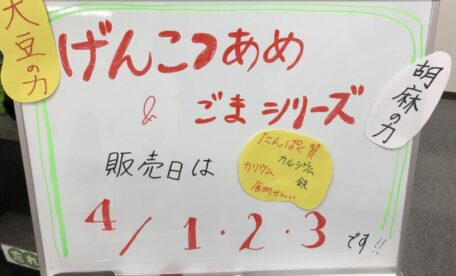 大豆の力
げんこつあめ
& ごまシリーズ
胡麻の力
販売日は
たんぱく質
カルシウム
カリウム 鉄
食物せんい
4/1・2・3 です!!!